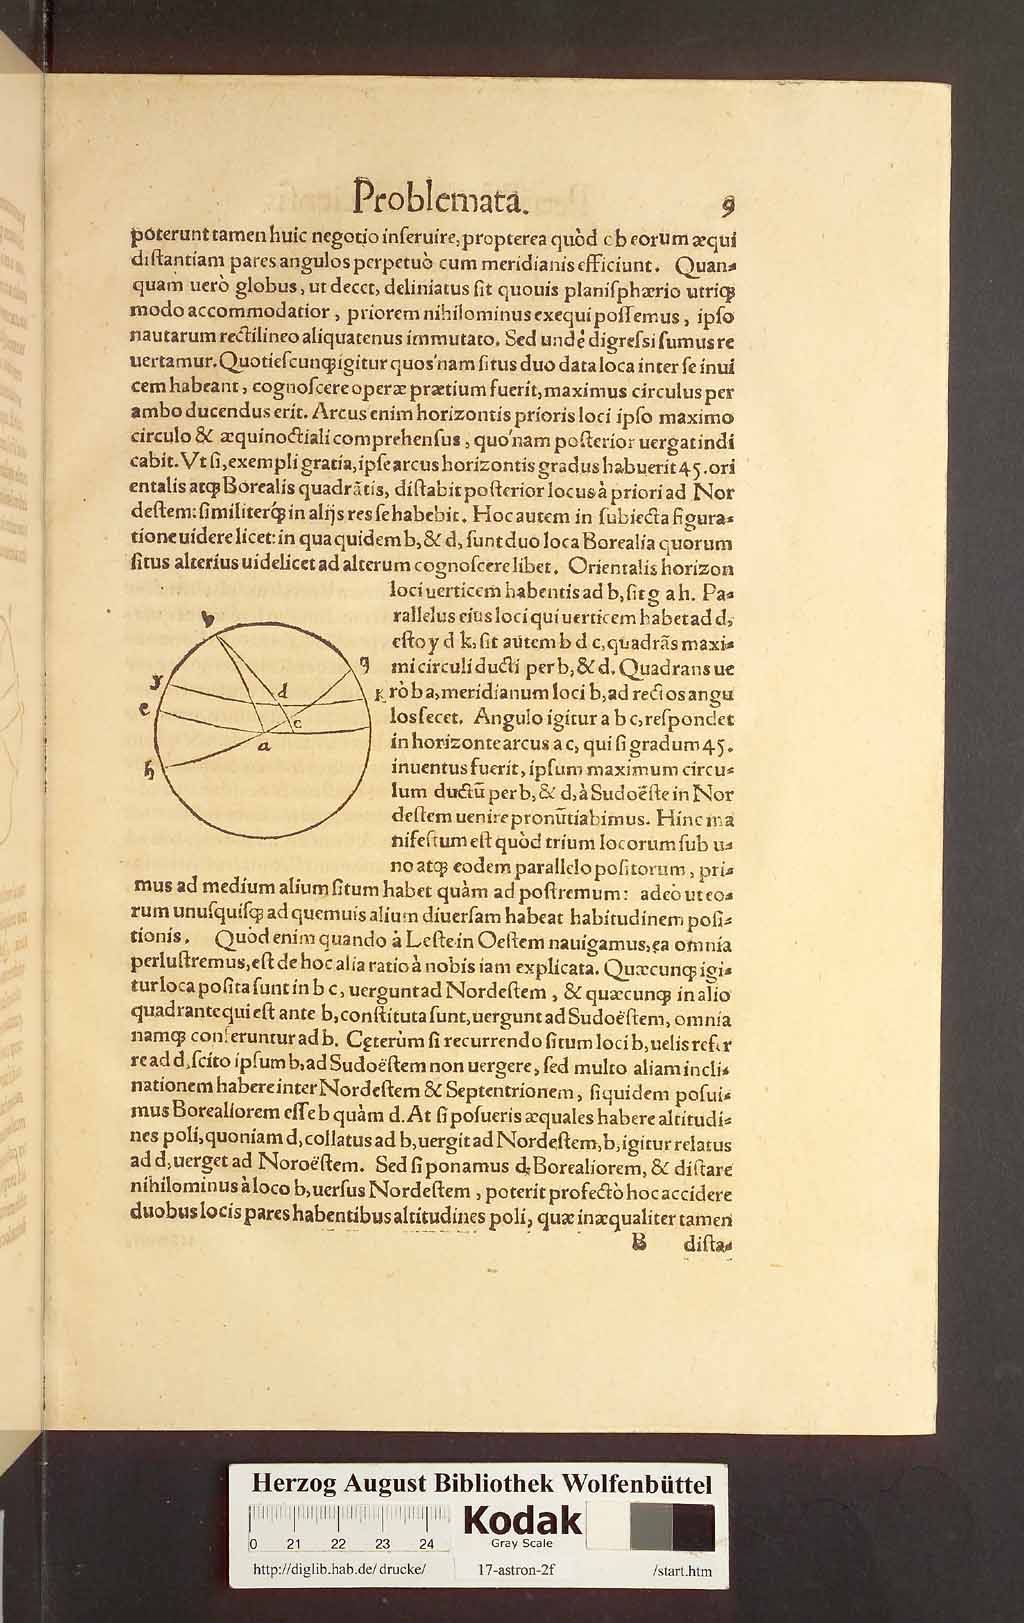 Problemata. 9
poterunt tamen huic negotio inſeruire, propterea quòd ob eorum æqui
diſtantiam pares angulos perpetuò cum meridianis efficiunt. Quan⸗
quam uerò globus, ut decet, deliniatus ſit quouis planiſphærio utriqꝫ
modo accommodatior, priorem nihilominus exequi poſſemus, ipſo
nautarum rectilineo aliquatenus immutato. Sed undè digreſsi ſumus re
uertamur. Quotieſcunqꝫ igitur quos'nam ſitus duo data loca inter ſe inui
cem habeant, cognoſcere operæ prætium fuerit, maximus circulus per
ambo ducendus erit. Arcus enim horizontis prioris loci ipſo maximo
circulo & æquinoctiali comprehenſus, quo'nam poſterior uergat indi
cabit. Vt ſi, exempli gratia, ipſe arcus horizontis gradus habuerit 45. ori
entalis atqꝫ Borealis quadrãtis, diſtabit poſterior locus à priori ad Nor
deſtem: ſimiliterqꝫ́ in alijs res ſe habebit. Hoc autem in ſubiecta figura⸗
tione uidere licet: in qua quidem b, & d, ſunt duo loca Borealia quorum
ſitus alterius uidelicet ad alterum cognoſcere libet. Orientalis horizon
loci uerticem habentis ad b, ſit g a h. Pa⸗
rallelus eius loci qui uerticem habet ad d,
eſto y d k, ſit autem b d c, quadrãs maxi⸗
mi circuli ducti per b, & d. Quadrans ue
rò b a, meridianum loci b, ad rectos angu
los ſecet. Angulo igitur a b c, reſpondet
in horizonte arcus a c, qui ſi gradum 45.
inuentus fuerit, ipſum maximum circu⸗
lum ductũ per b, & d, à Sudoëſte in Nor
deſtem uenire pronũtiabimus. Hinc ma
nifeſtum eſt quòd trium locorum ſub u⸗
no atqꝫ eodem parallelo poſitorum, pri⸗
b
g
y
d
k
e
c
a
h
mus ad medium alium ſitum habet quàm ad poſtremum: adeò ut eo⸗
rum unuſquiſqꝫ ad quemuis alium diuerſam habeat habitudinem poſi⸗
tionis. Quòd enim quando à Leſte in Oeſtem nauigamus, ea omnia
perluſtremus, eſt de hoc alia ratio à nobis iam explicata. Quæcunqꝫ igi⸗
tur loca poſita ſunt in b c, uergunt ad Nordeſtem, & quæcunqꝫ in alio
quadrante qui eſt ante b, conſtituta ſunt, uergunt ad Sudoëſtem, omnia
namqꝫ conferuntur ad b. Cęterùm ſi recurrendo ſitum loci b, uelis refer
re ad d, ſcito ipſum b, ad Sudoëſtem non uergere, ſed multo aliam incli⸗
nationem habere inter Nordeſtem & Septentrionem, ſiquidem poſui⸗
mus Borealiorem eſſe b quàm d. At ſi poſueris æquales habere altitudi⸗
nes poli, quoniam d, collatus ad b, uergit ad Nordeſtem, b, igitur relatus
ad d, uerget ad Noroëſtem. Sed ſi ponamus d, Borealiorem, & diſtare
nihilominus à loco b, uerſus Nordeſtem, poterit profectò hoc accidere
duobus locis pares habentibus altitudines poli, quæ inæqualiter tamen
B diſta⸗
Herzog August Bibliothek Wolfenbüttel
0 21 22 23 24
Kodak
Gray Scale
http://diglib.hab.de/drucke/ 17-astron-2f /start.htm